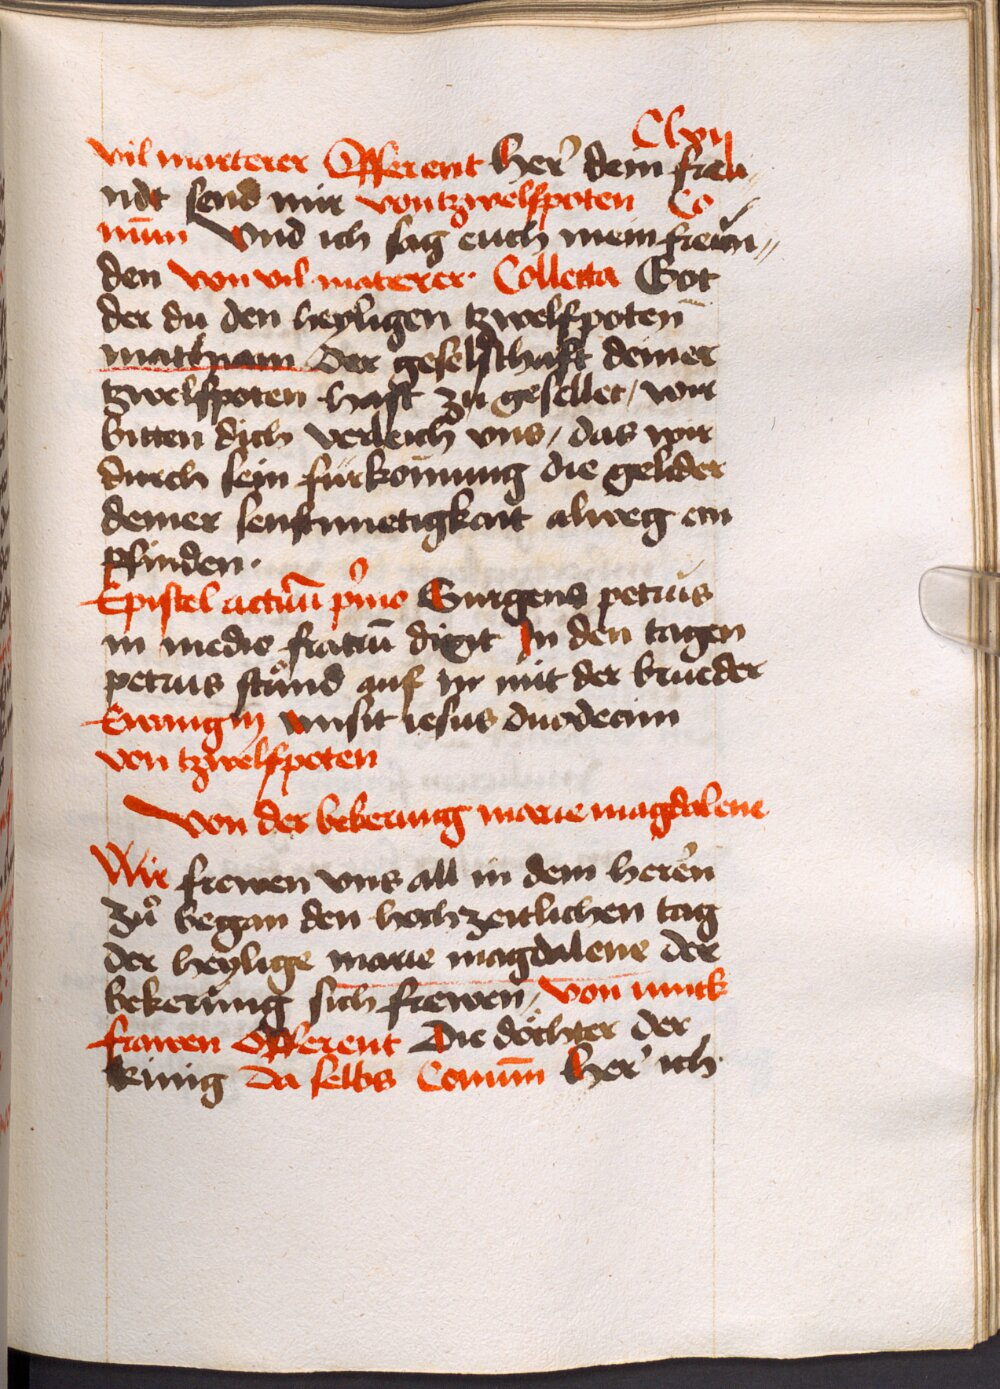 Clxij
vil marterer Offerent Her dein freu
ndt send mir von tzwelfpoten Co
mūm Vnd ich sag euch mein freün
den von vil materer. Collecta Got
der du den heyligen tzwelfpoten
mathiam der geselschaft deiner
tzwelfpoten hast zu gesellet / wir
bitten dich verleich vns / das wir
durch sein fürkomung die gelider
deiner senftmuetigkait alweg en
pfinden.
Epistel actuū pͦmo Surgens petrus
in medio fratrū dixit In den tagen
petrus stůnd auf in mit der brueder
Ewangm̄ misit iesus duodecim
von tzwelfpoten
Von der bekerung marie magdalene
Wir frewen vns all in dem heren
zů began den hochzeitlichen tag
der heylige marie magdalene der
bekerung sich frewen / von iunck
frawen Offerent Die döchter der
king Da selbs Comūm Her ich